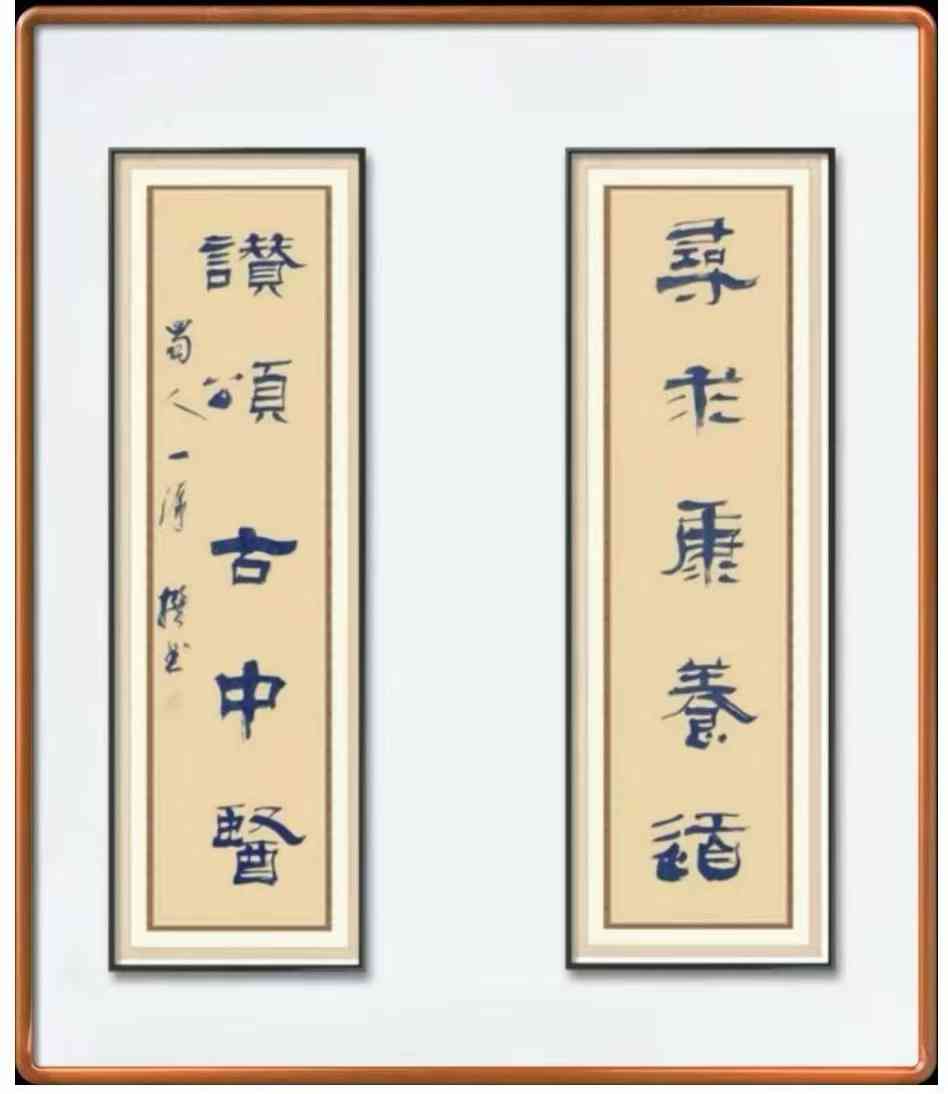 尋求康養道
讚頌古中醫
蜀人一 撰书